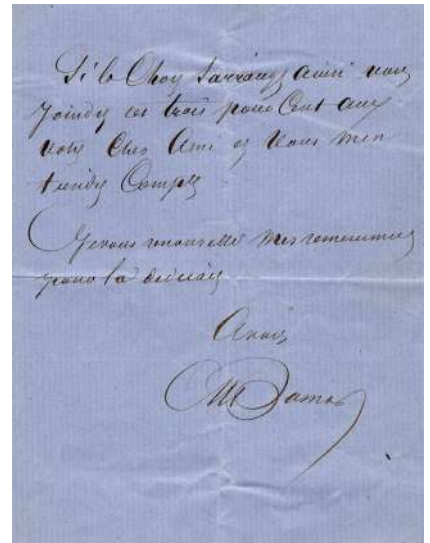 Si la Chose s'arrange ainsi vous
joindrez ces trois pour Cent aux
votres Cher Ami et vous m'en
tiendrez Compte
Je vous renouvelle mes remerciements
pour la
A vous
Dumas